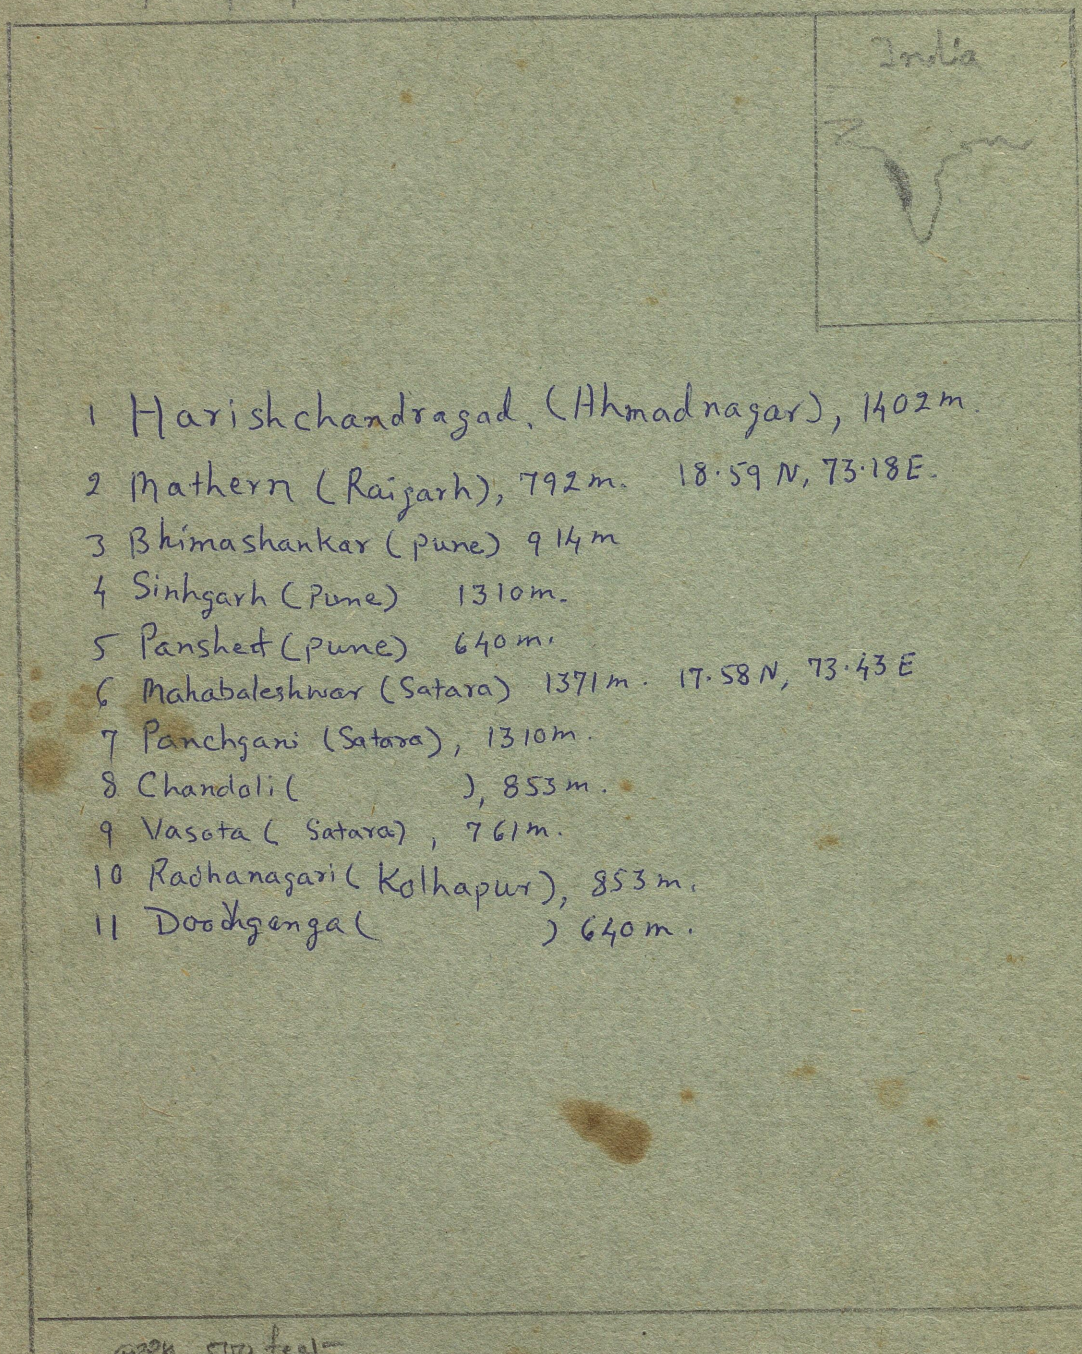 India
1 Harishchandragad, (Ahmadnagar), 1402m.
2 Mathern (Raigarh), 792m. 18.59 N, 73.18 E.
3 Bhimashankar (pune) 914m
4 Sinhgarh (Pune) 1310m.
5 Panshet (pune) 640m.
6 Mahabaleshwar (Satara) 1371m. 17.58 N, 73.43 E
7 Panchgani (Satara), 1310m.
8 Chandoli ( ), 853m.
9 Vasota ( Satara) , 761m.
10 Radhanagari ( Kolhapur), 853m.
11 Doodhganga ( ) 640m.